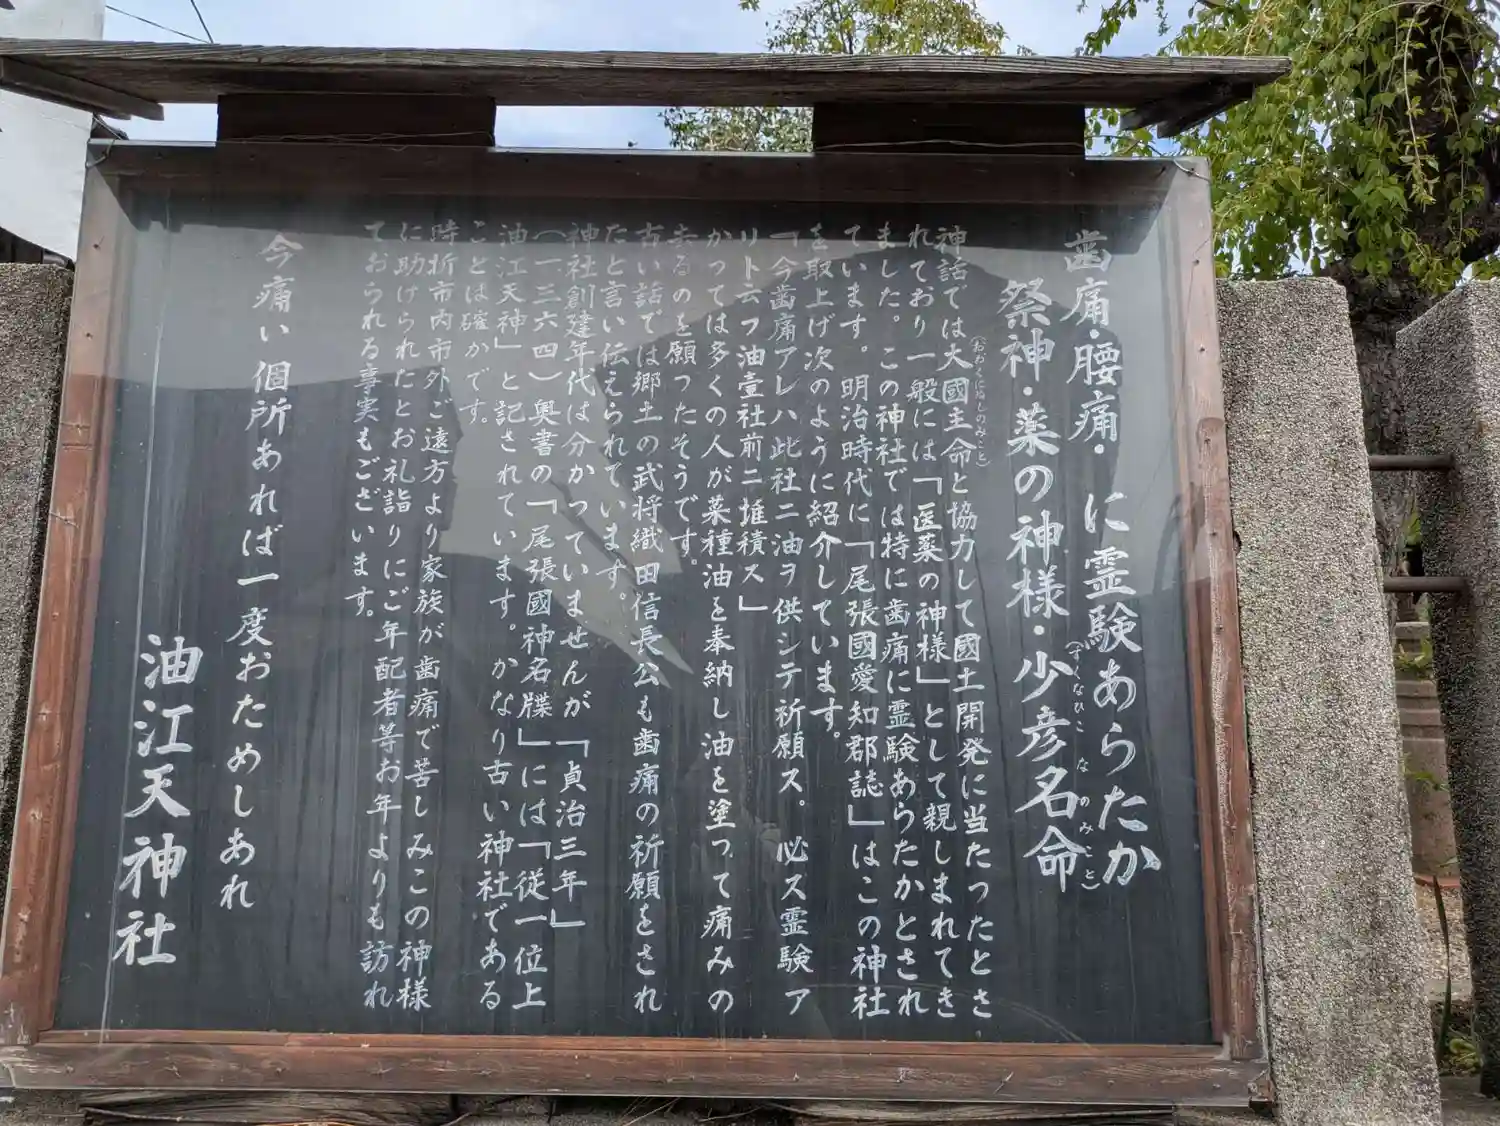 歯痛・腰痛・に霊験あらたか
祭神・薬の神様・少彦名命(すくなひこなのみこと)
神話では大國主命(おおくにぬしのみこと)と協力して國土開発に当たったとさ
れており一般には「医薬の神様」として親しまれてき
ました。この神社では特に歯痛に霊験あらたかとされ
ています。明治時代に「尾張國愛知郡誌」はこの神社
を取上げ次のように紹介しています。
「今歯痛アレハ此社ニ油ヲ供シテ祈願ス。必ス霊験ア
リト云フ油壹社前ニ堆積ス」
かつては多くの人が菜種油を奉納し油を塗って痛みの
去るのを願ったそうです。
古い話では郷土の武将織田信長公も歯痛の祈願をされ
たと言い伝えられています。
神社創建年代は分かっていませんが「貞治三年」
(一三六四)奥書の「尾張國神名牒」には「従一位上
油江天神」と記されています。かなり古い神社である
ことは確かです。
時折市内市外ご遠方より家族が歯痛で苦しみこの神様
に助けられたとお礼詣りにご年配者等お年よりも訪れ
ておられる事実もございます。
今痛い個所あれば一度おためしあれ
油江天神社